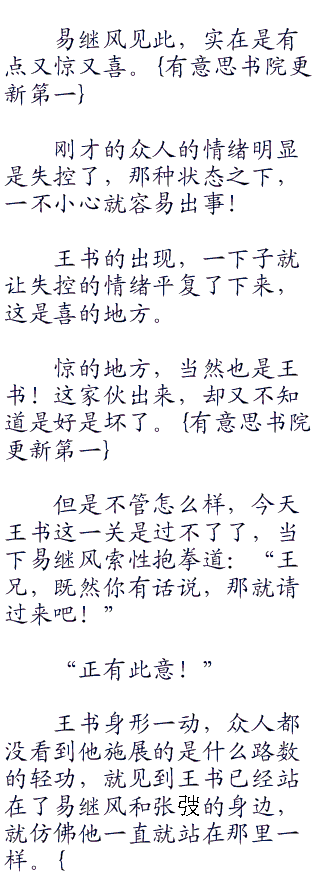 易继风见此，实在是有
点又惊又喜。{有意思书院更
新第一}
刚才的众人的情绪明显
是失控了，那种状态之下，
一不小心就容易出事！
王书的出现，一下子就
让失控的情绪平复了下来，
这是喜的地方。
惊的地方，当然也是王
书！这家伙出来，却又不知
道是好是坏了。{有意思书院
更新第一}
但是不管怎么样，今天
王书这一关是过不了了，当
下易继风索性抱拳道：“王
兄，既然你有话说，那就请
过来吧！”
“正有此意！”
王书身形一动，众人都
没看到他施展的是什么路数
的轻功，就见到王书已经站
在了易继风和张弢的身边，
就仿佛他一直就站在那里一
样。{